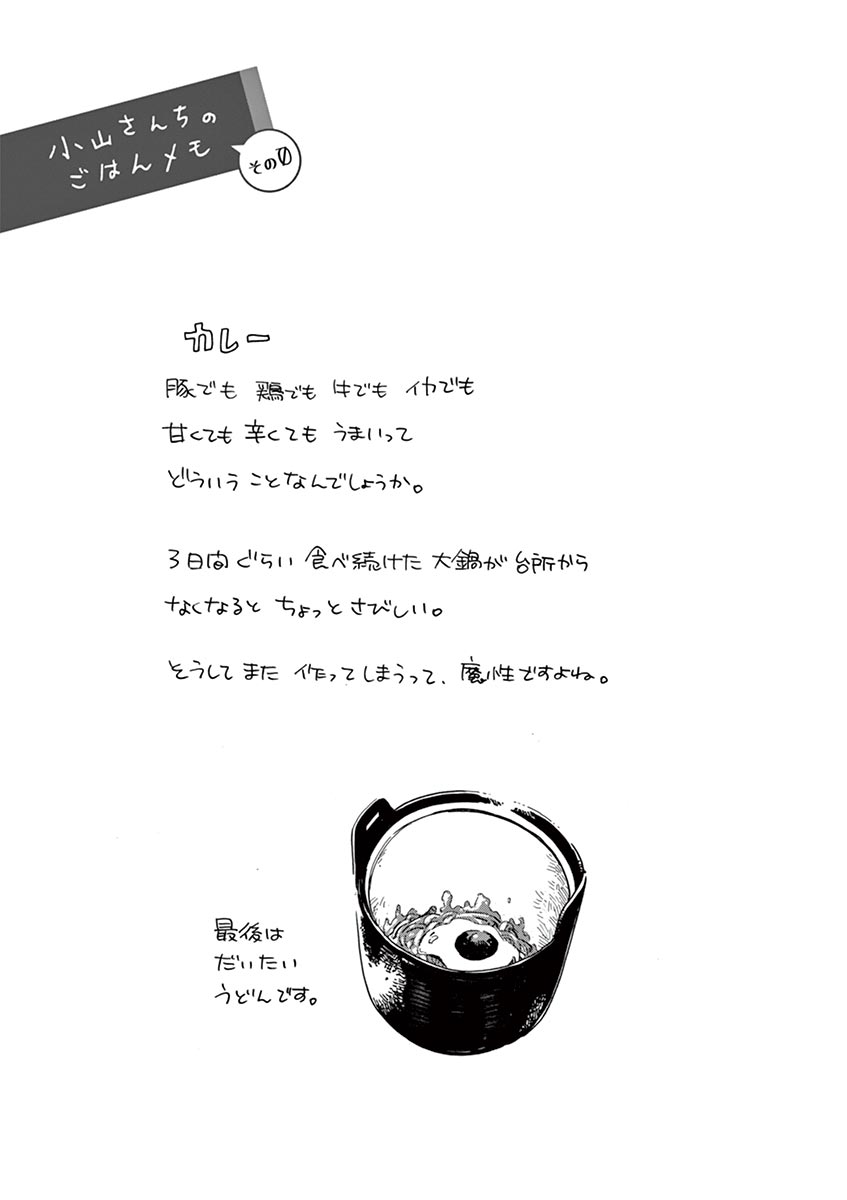 小山さんちの
ごはんメモ
その0
カレー
豚でも 鶏でも 牛でも イカでも
甘くても 辛くても うまいって
どういう ことなんでしょうか。
3日間ぐらい 食べ続けた 大鍋が 台所から
なくなると ちょっと さびしい。
そうして また 作ってしまうって、魔性ですよね。
最後は
だいたい
うどんです。